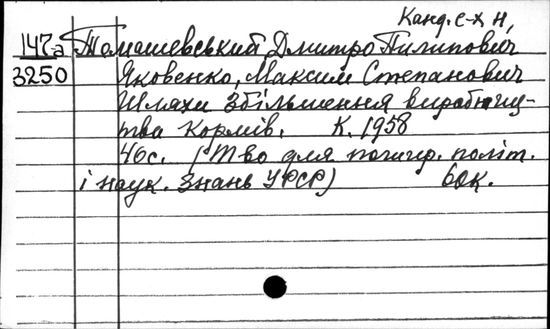 Канд. с-х н,
147а Томашевський, Дмитро Пилипович,
3250 Яковенко, Максим Степанович
Шляхи збільшення виробниц-
тва кормів. К. 1958
40с. (Т-во для пошир. політ.
і наук. знань УРСР) 60к.